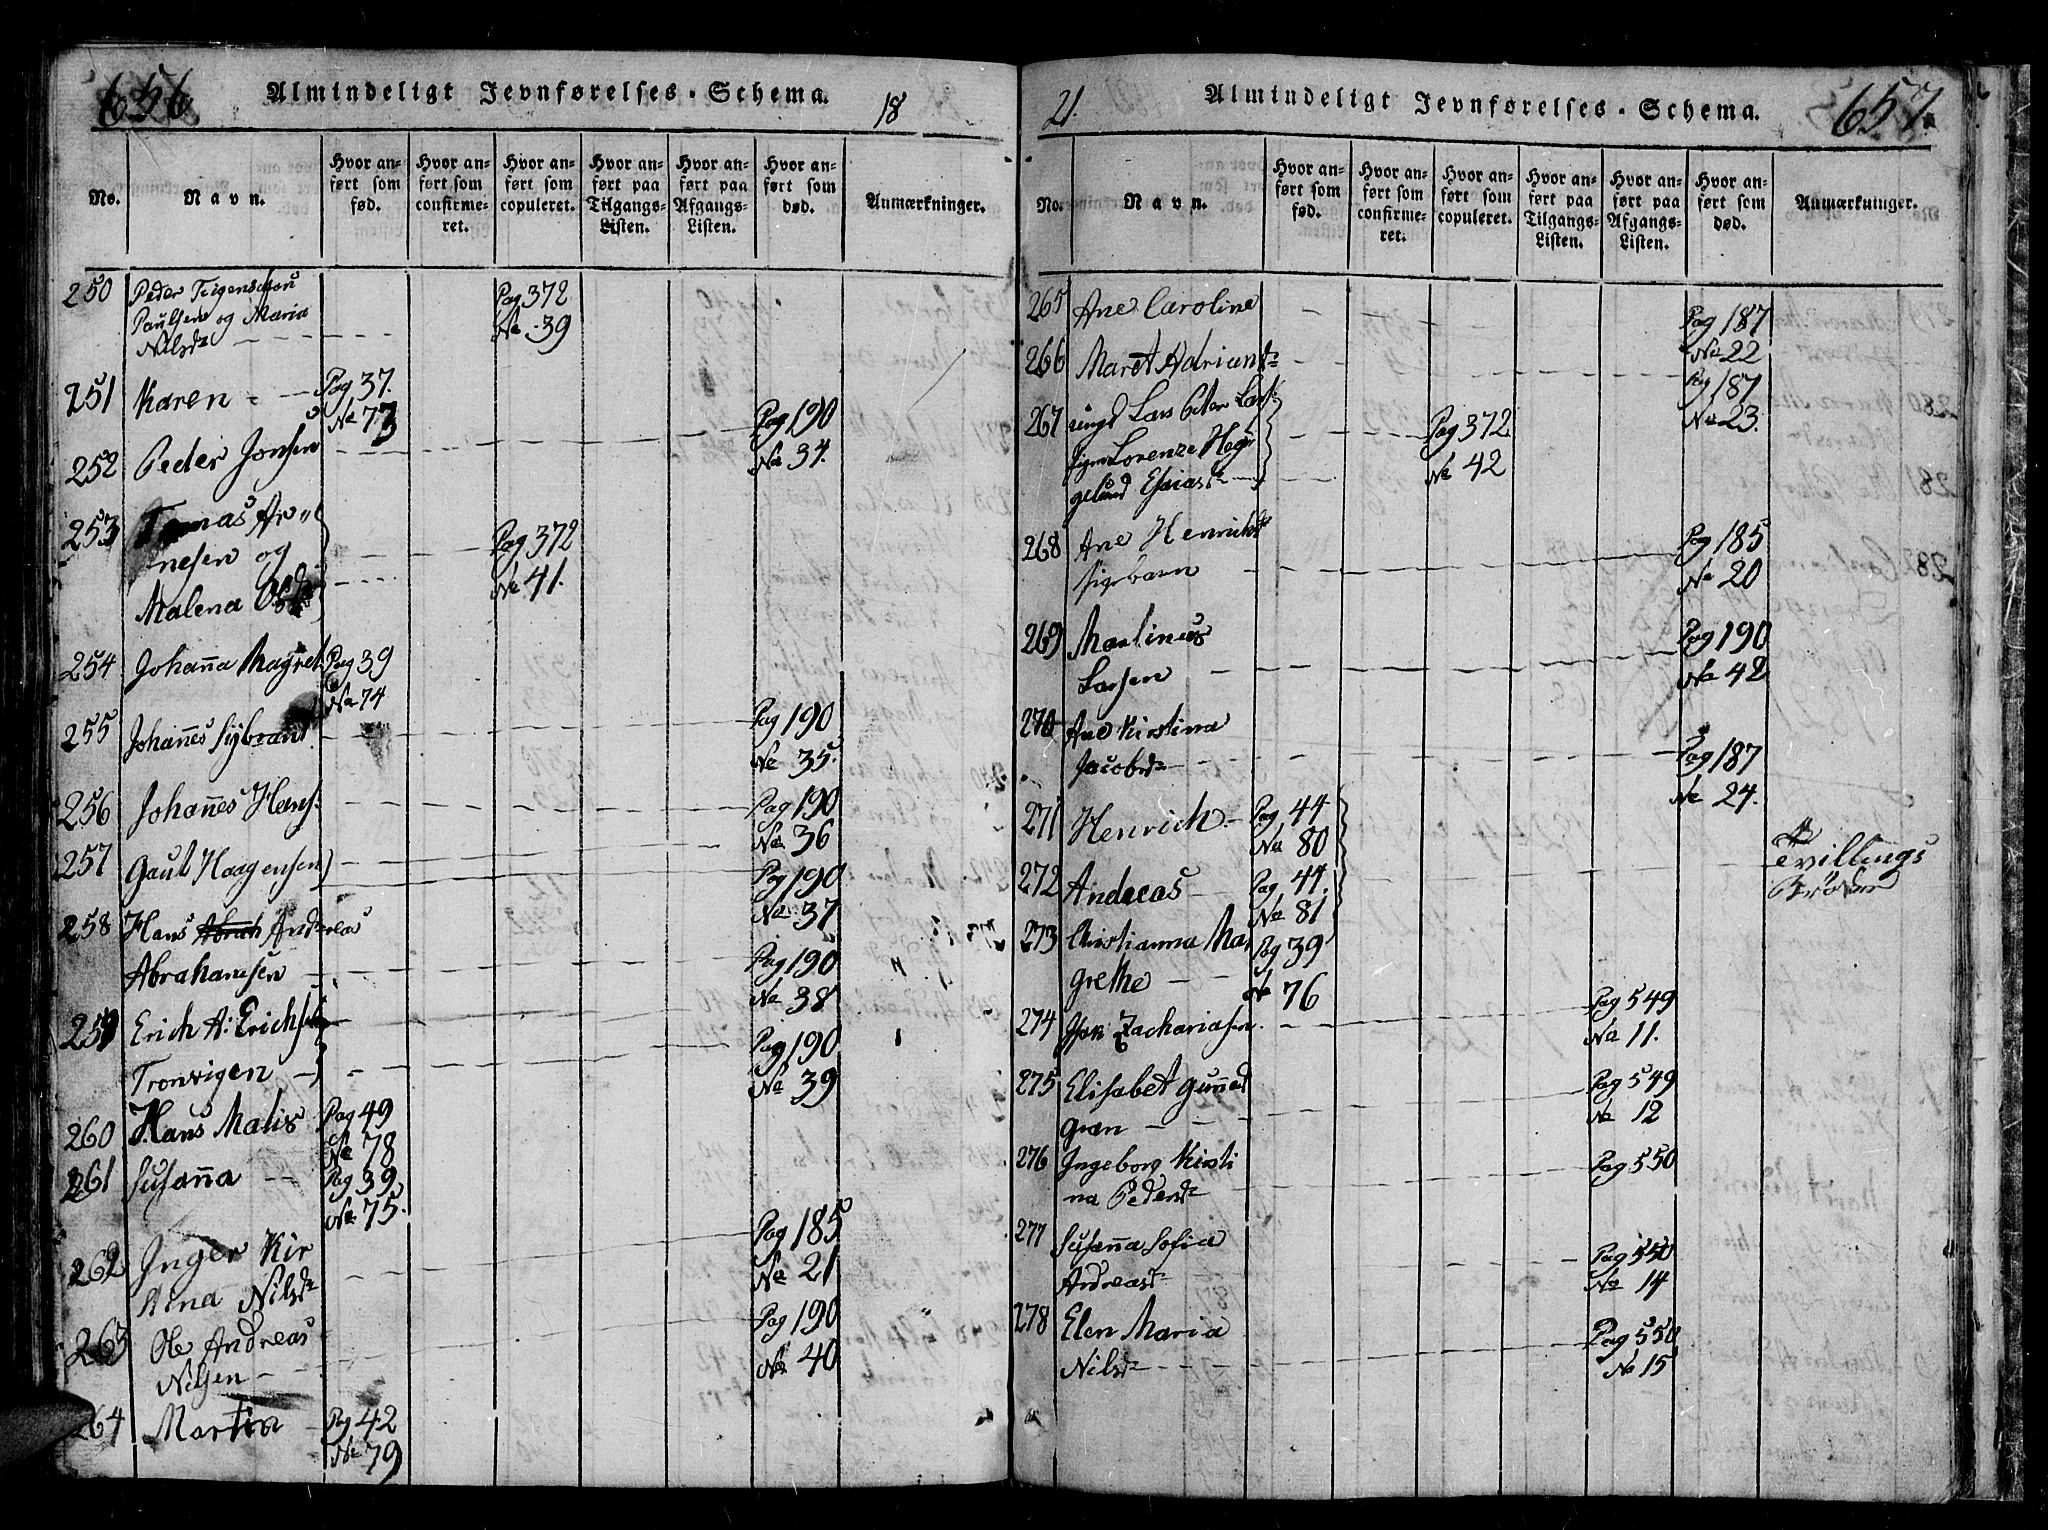 656 Almindeligt Jevnførelses-Schema. 18
No. Navn. Hvor anført som fød. Hvor anført som confirmeret. Hvor anført som copuleret. Hvor anført paa Tilgangs-Listen. Hvor anført paa Afgangs-Listen. Hvor anført som død. Anmærkninger.
250 Peder
Paulsen og Maria Pag 372
Nilsd No 39
251 Karen Pag 37.
No 73
252 Peder Jonsen Pag 190
No 34.
253 Ar„
nesen og Pag 372
Malena No 41.
254 Johanna Magret Pag 39
No 74
255 Johannes Sybrant Pag 190
No 35.
256 Johannes Hans. Pag 190
No 36
257 Gaut Haagensen Pag 190
No 37
258 Hans Andreas
Abrahamsen Pag 190
No 38
259 Erich A: Erichsen Pag 190
Tronvigen No 39
260 Hans Matis Pag 49
No 78
261 Susanna Pag 39
No 75.
262 Inger Kir Pag 185
stina Nilsd No 21
263 Ole Andreas Pag 190
Nilsen No 40
264 Martin Pag 42
No 79
21. Almindeligt Jevnførelses-Schema. 657.
No. Navn. Hvor anført som fød. Hvor anført som confirmeret. Hvor anført som copuleret. Hvor anført paa Tilgangs-Listen. Hvor anført paa Afgangs-Listen. Hvor anført som død. Anmærkninger.
265 Ane Caroline Pag 187
No 22
266 Maret Adriansd Pag 187
No 23.
267 ungk Lars Peter Lars
pigen Lorenze Heg Pag 372
gelund Esaiasd No 42
268 Ane Henrichs Pag 185
pigebarn No 20
269 Martinus Pag 190
Larsen No 42
270 Ane Kirstina
Jacobsd Pag 187
No 24.
271 Henrich Pag 44
No 80 Tvillings
272 Andreas Pag 44. Brødre
No 81
273 Christianna Mar Pag 39
grethe No 76
274 Zachariasen Pag 549
No 11.
275 Elisabet Gunned Pag 549
Gran No 12
276 Ingeborg Kirsti Pag 550
na Pedersd
277 Susanna Sofia Pag 550
Andreasd No 14
278 Elen Maria Pag 550
Nilsd No 15